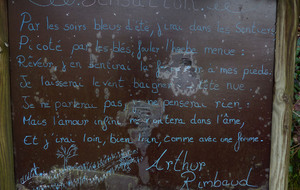 Sensation
Par les soirs bleus d'été, j'irai dans les sentiers
Picoté par les blés, fouler l'herbe menue :
Rêveur, j'en sentirai la à mes pieds.
Je laisserai le vent baigner tête nue.
Je ne parlerai pas, je ne penserai rien :
Mais l'amour infini me montera dans l'âme,
Et j'irai loin, bien loin, comme avec une femme.
Arthur
Rimbaud